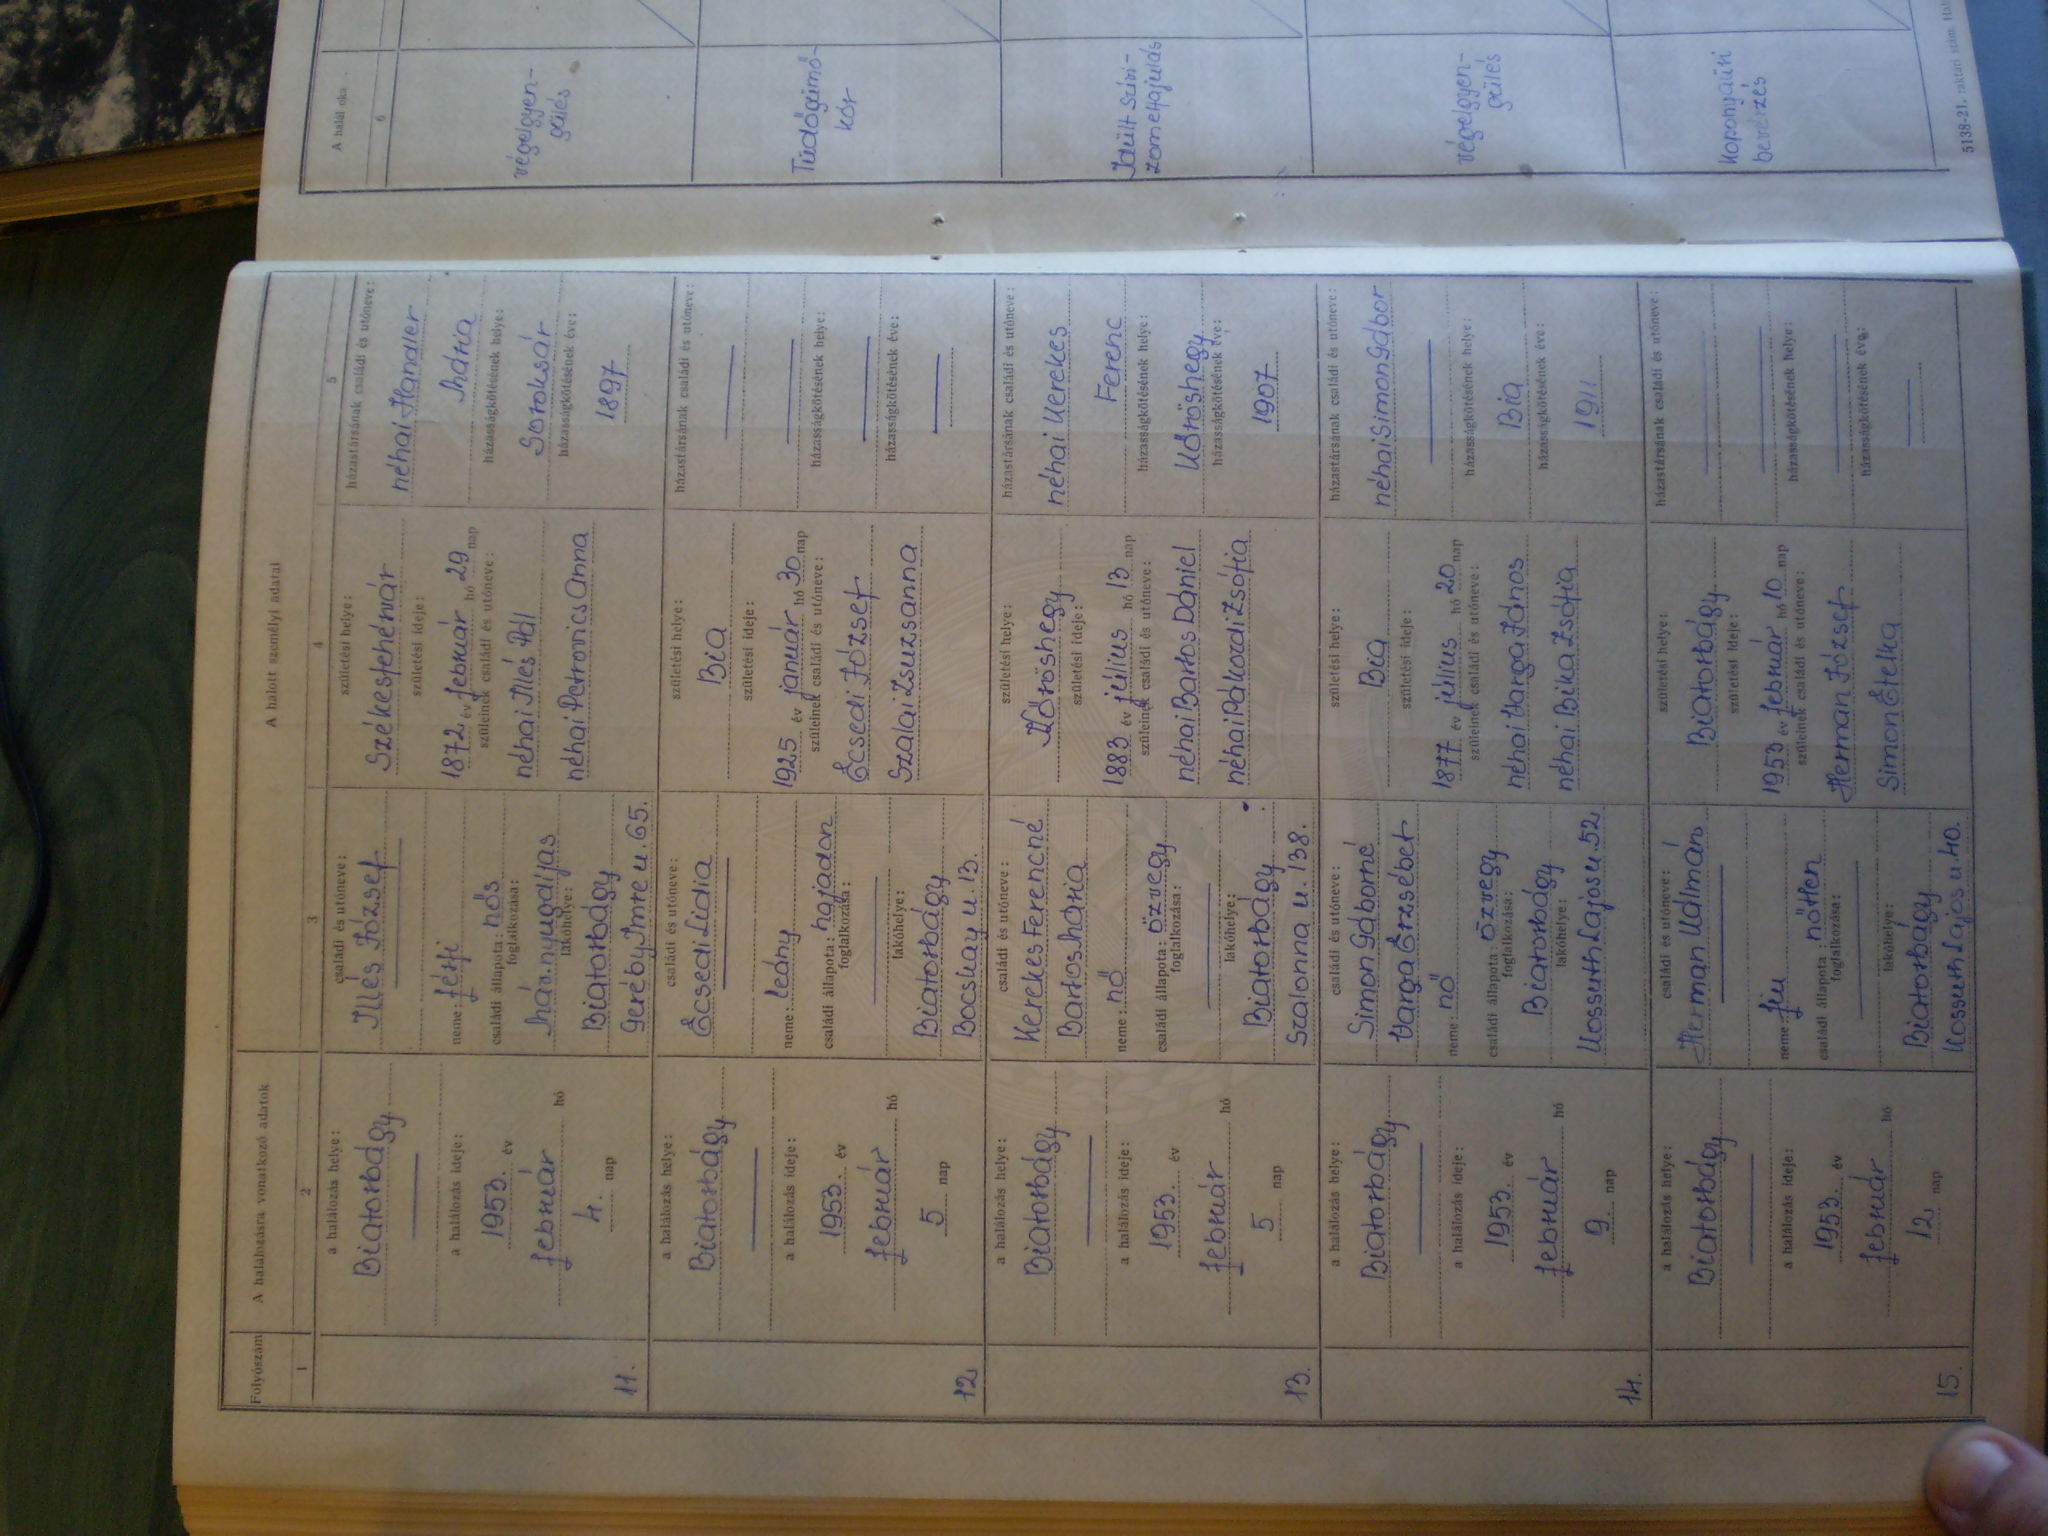 Folyószám
A halálozásra vonatkozó adatok
A halott személyi adatai
A halál oka
1
2
3
4
5
6
11.
a halálozás helye:
Biatorbágy
a halálozás ideje:
1953. év
február hó
4. nap
családi és utóneve:
Illés József
neme: férfi
családi állapota: nős
foglalkozása:
Máv. nyugdíjas
lakóhelye:
Biatorbágy
Geréby Imre u. 65.
születési helye:
Székesfehérvár
születési ideje:
1872 év február hó 29 nap
szüleinek családi és utóneve:
néhai Illés Pál
néhai Petrovics Anna
házastársának családi és utóneve:
néhai Handler
Mária
házasságkötésének helye:
Soroksár
házasságkötésének éve:
1897
végelgyen-
gülés
12
a halálozás helye:
Biatorbágy
a halálozás ideje:
1953. év
február hó
5 nap
családi és utóneve:
Ecsedi Lidia
neme: leány
családi állapota: hajadon
foglalkozása:
lakóhelye:
Biatorbágy
Bocskay u. 13.
születési helye:
Bia
születési ideje:
1925 év január hó 30 nap
szüleinek családi és utóneve:
Ecsedi József
Szalai Zsuzsanna
házastársának családi és utóneve:
házasságkötésének helye:
házasságkötésének éve:
Tüdőgümő-
kór
13.
a halálozás helye:
Biatorbágy
a halálozás ideje:
1953. év
február hó
5 nap
családi és utóneve:
Kerekes Ferencné
Bartos Mária
neme: nő
családi állapota: özvegy
foglalkozása:
lakóhelye:
Biatorbágy
Szalonna u. 138.
születési helye:
Kőröshegy
születési ideje:
1883 év július hó 13 nap
szüleinek családi és utóneve:
néhai Bartos Dániel
néhai Pákozdi Zsófia
házastársának családi és utóneve:
néhai Kerekes
Ferenc
házasságkötésének helye:
Kőröshegy
házasságkötésének éve:
1907
Idült szívi-
zomelfajulás
14.
a halálozás helye:
Biatorbágy
a halálozás ideje:
1953. év
február hó
9. nap
családi és utóneve:
Simon Gáborné
Varga Erzsébet
neme: nő
családi állapota: özvegy
foglalkozása:
Biatorbágy
lakóhelye:
Kossuth Lajos u. 52
születési helye:
Bia
születési ideje:
1877 év július hó 20 nap
szüleinek családi és utóneve:
néhai Varga János
néhai Bika Zsófia
házastársának családi és utóneve:
néhai Simon Gábor
házasságkötésének helye:
Bia
házasságkötésének éve:
1911
végelgyen-
gülés
15.
a halálozás helye:
Biatorbágy
a halálozás ideje:
1953. év
február hó
12 nap
családi és utóneve:
Herman Kálmán
neme: fiu
családi állapota: nőtlen
foglalkozása:
lakóhelye:
Biatorbágy
Kossuth Lajos u. 40.
születési helye:
Biatorbágy
születési ideje:
1953 év február hó 10 nap
szüleinek családi és utóneve:
Herman József
Simon Etelka
házastársának családi és utóneve:
házasságkötésének helye:
házasságkötésének éve:
Koponyaüri
bevérzés
5138-21. raktári szám.